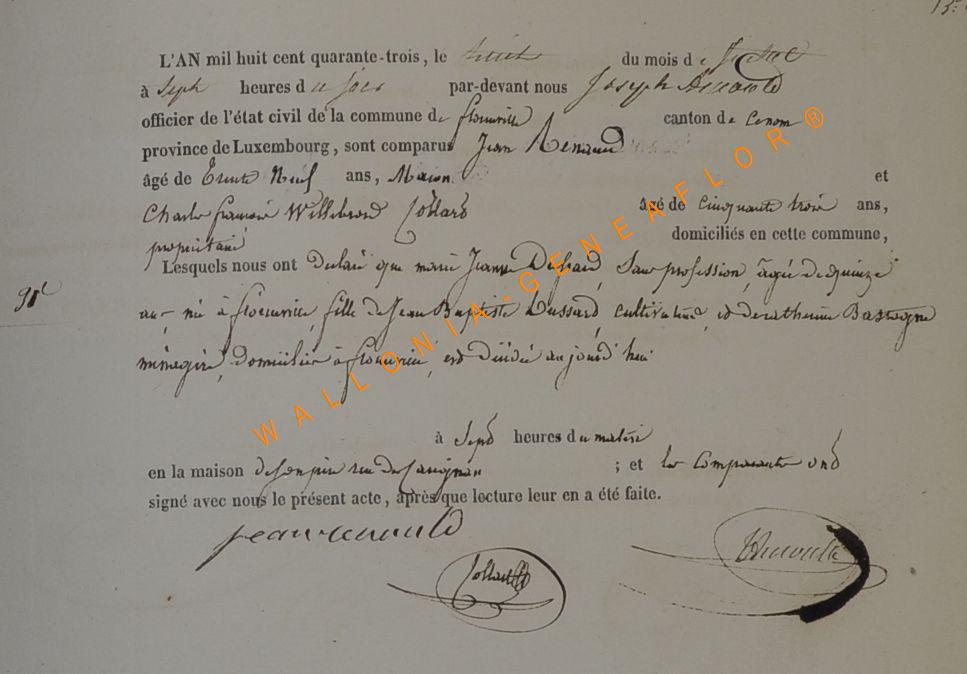 L'AN mil huit cent quarante-trois, le huit du mois de
à Sept heures du jour par-devant nous Joseph Arnould
officier de l'état civil de la commune de florenville canton de
province de Luxembourg, sont comparus Jean Renauld
âgé de trente Neuf ans, Macon et
Charles françois Willebrord Collard âgé de cinquante trois ans,
propriétaire domiciliés en cette commune,
Lesquels nous ont declaré que marie Jeanne Dussard, Sans profession, âgée de quinze
ans, née à florenville, fille de Jean Baptiste Dussard, cultivateur, et de catherine Bastogne
ménagère, domiciliés à florenville, est décédée aujourd'hui
à Sept heures du matin
en la maison de son père rue de Carignan ; et les Comparants ont
signé avec nous le présent acte, après que lecture leur en a été faite.
jean renauld
Collard
WALLONIA-GENEAFLOR®